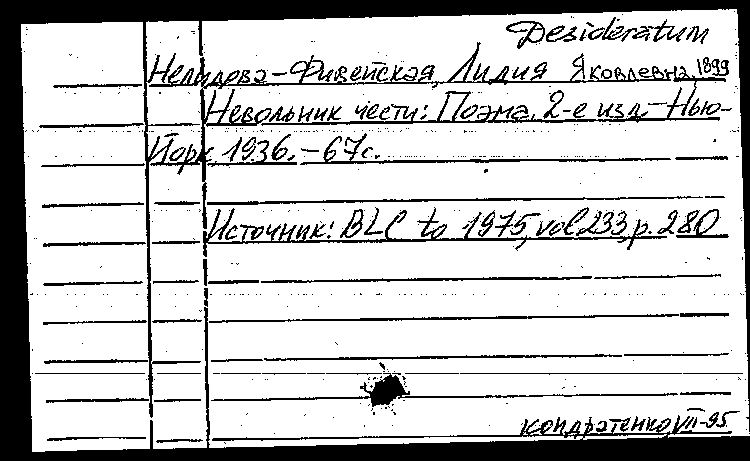 Desideratum
Нелидова-Фивейская, Лидия Яковлевна, 1899
Невольник чести: Поэма. 2-е изд. - Нью-
Йорк, 1936. - 67с.
Источник: BLC to 1975, vol 233, p. 280
Кондратенко, VII-95